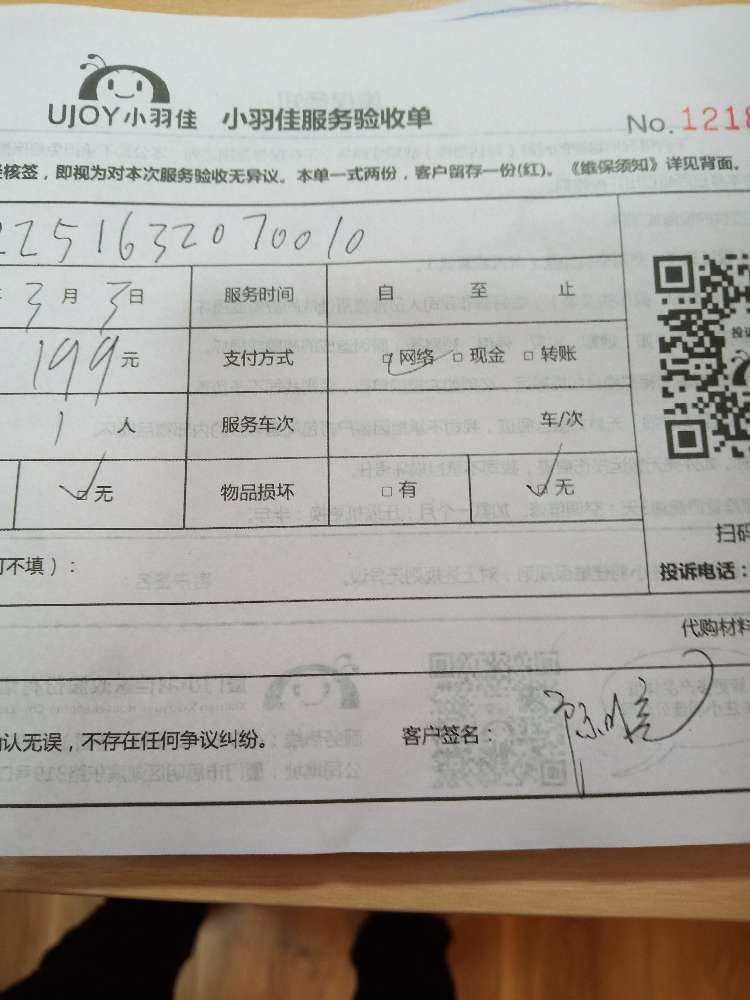 UJOY小羽佳 小羽佳服务验收单 No. 1218
核签，即视为对本次服务验收无异议。本单一式两份，客户留存一份(红)。《维保须知》详见背面。
2251632070010
3月3日 服务时间 自 至 止
199元 支付方式 □网络 □现金 □转账
1人 服务车次 车/次
□无 物品损坏 □有 □无
可不填）：
扫码
投诉电话：
代购材料
认无误，不存在任何争议纠纷。 客户签名：